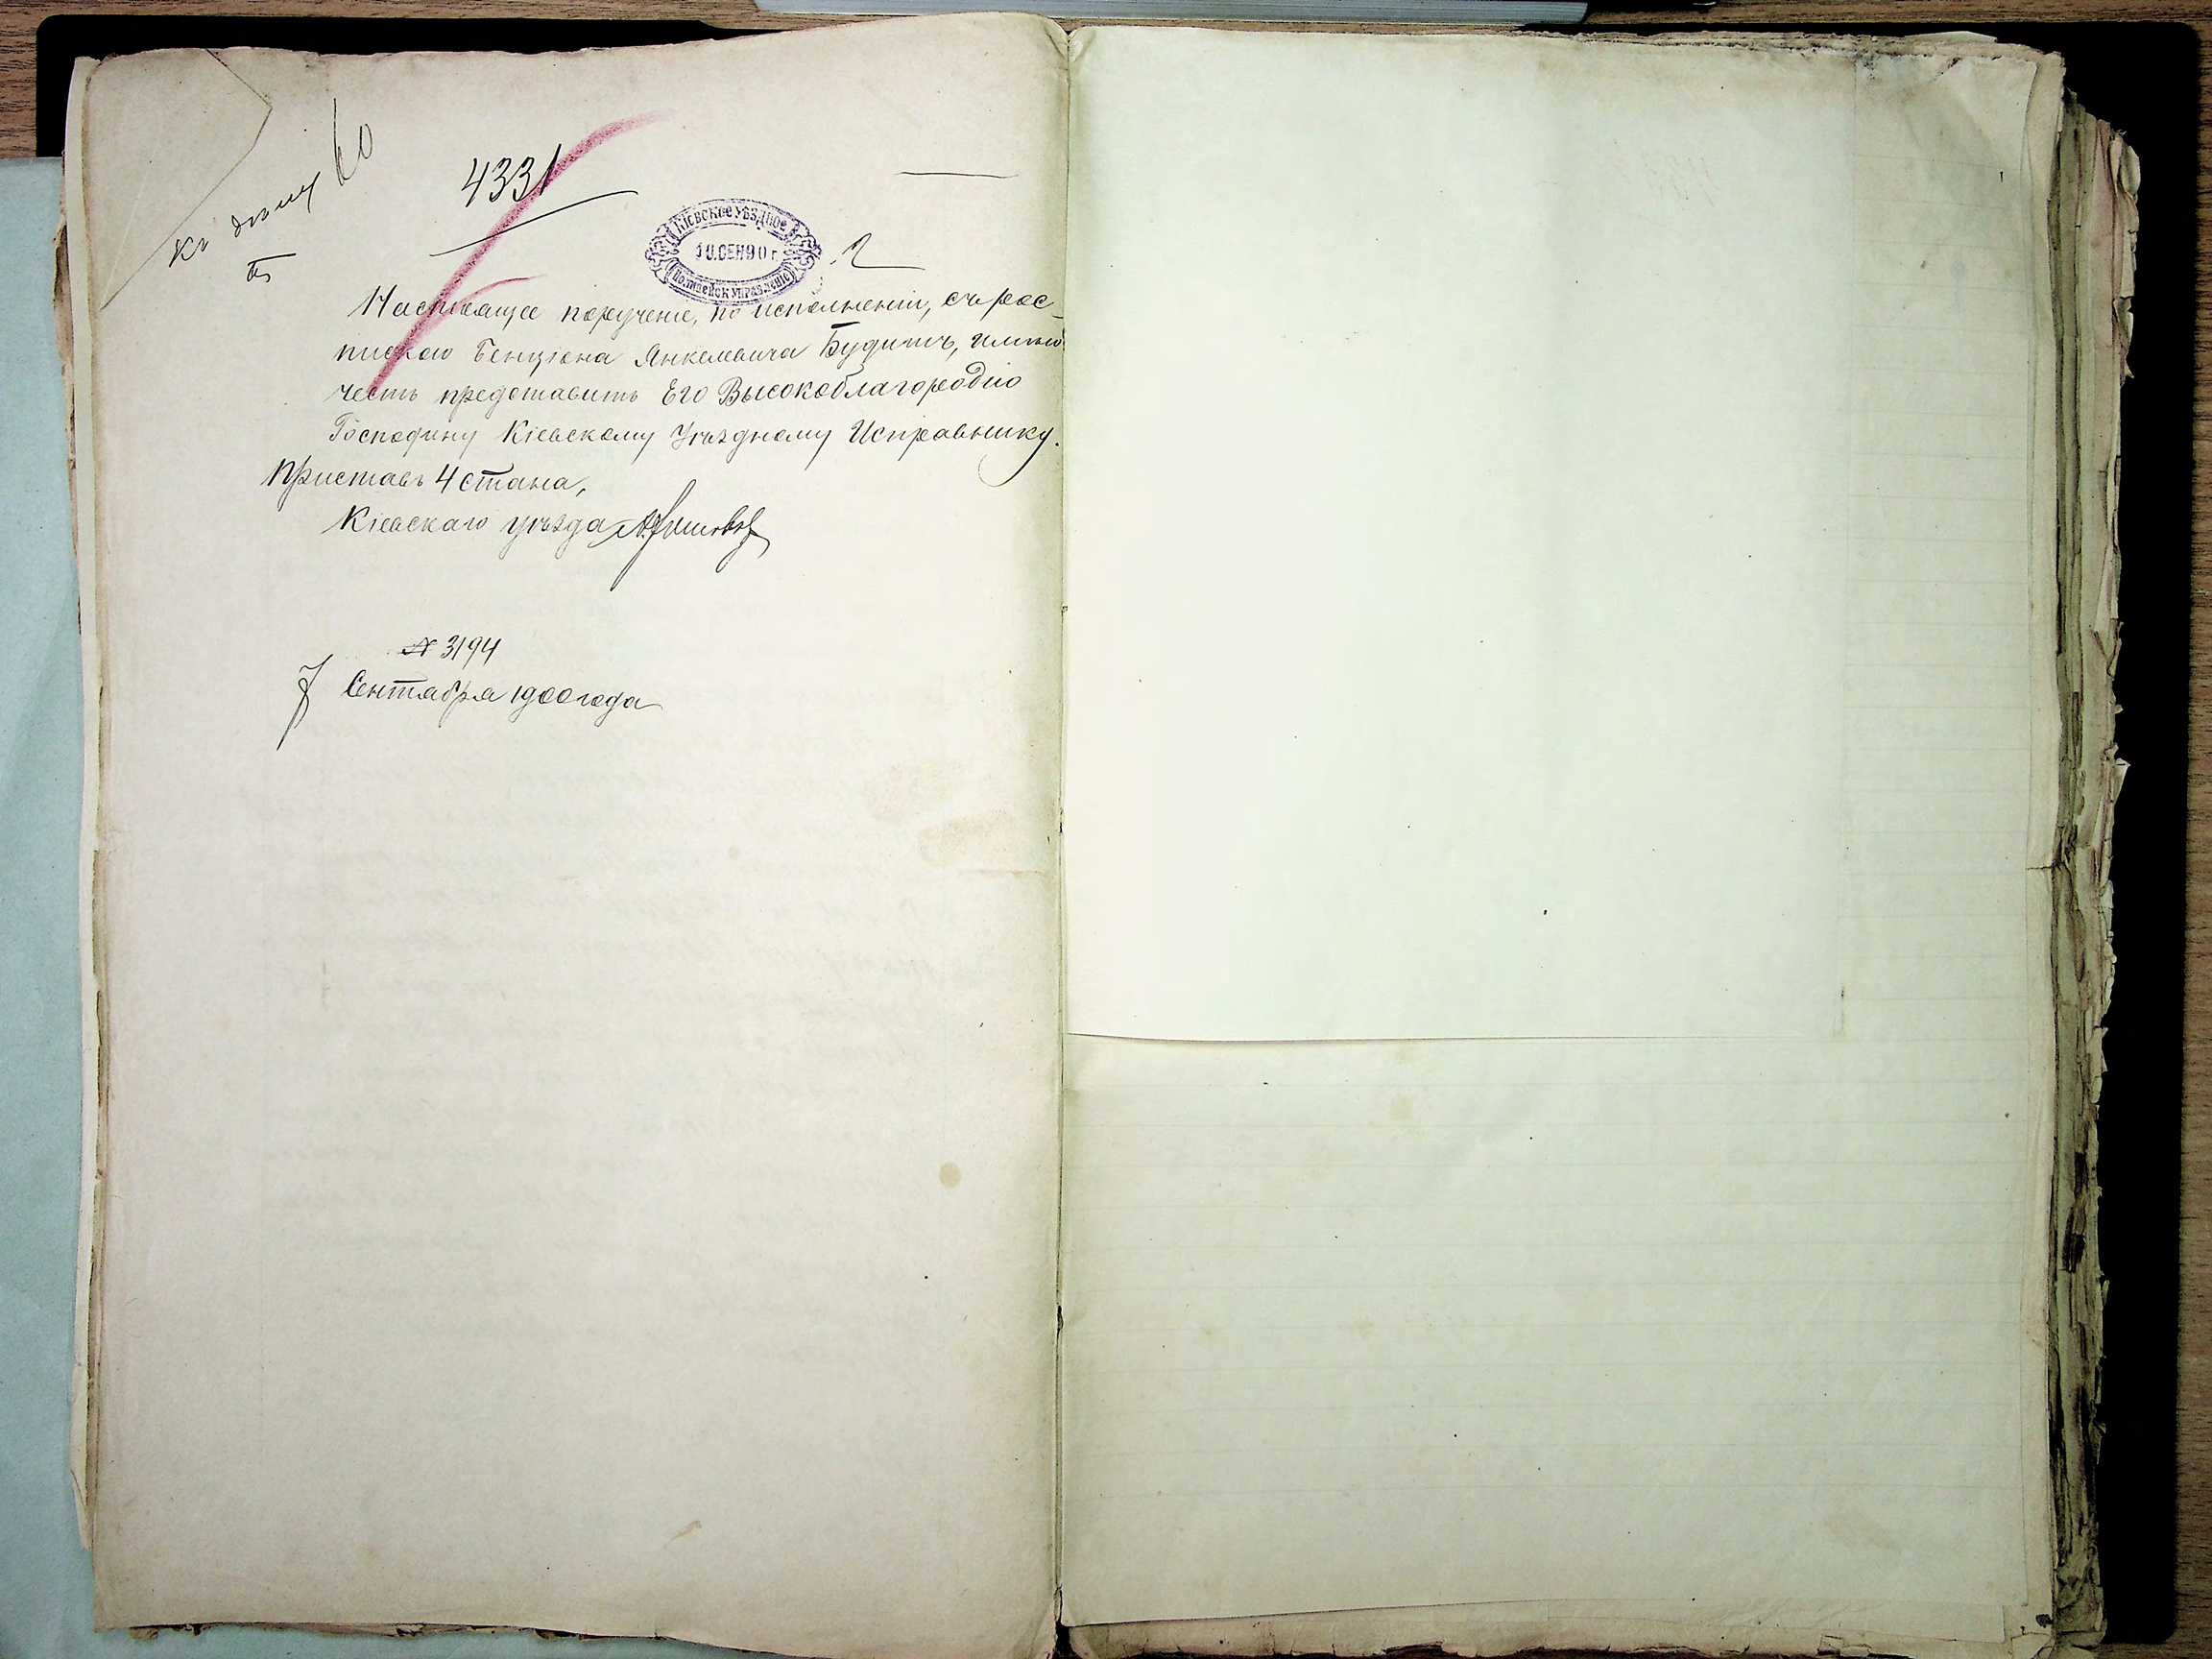 къ дѣлу
4331
КІЕВСКОЕ УѢЗДНОЕ
10.СЕН90 г.
ПОЛИЦЕЙСК УПРАВЛЕНІЕ
2
Настоящее порученіе, по исполненіи, съ рос-
пискою Бенціона Янкелевича Будитъ, имѣю
честь представить Его Высокоблагородію
Господину Кіевскому Уѣздному Исправнику.
Приставъ 4 стана,
Кіевскаго уѣзда
№ 3194
7 Сентября 1900 года